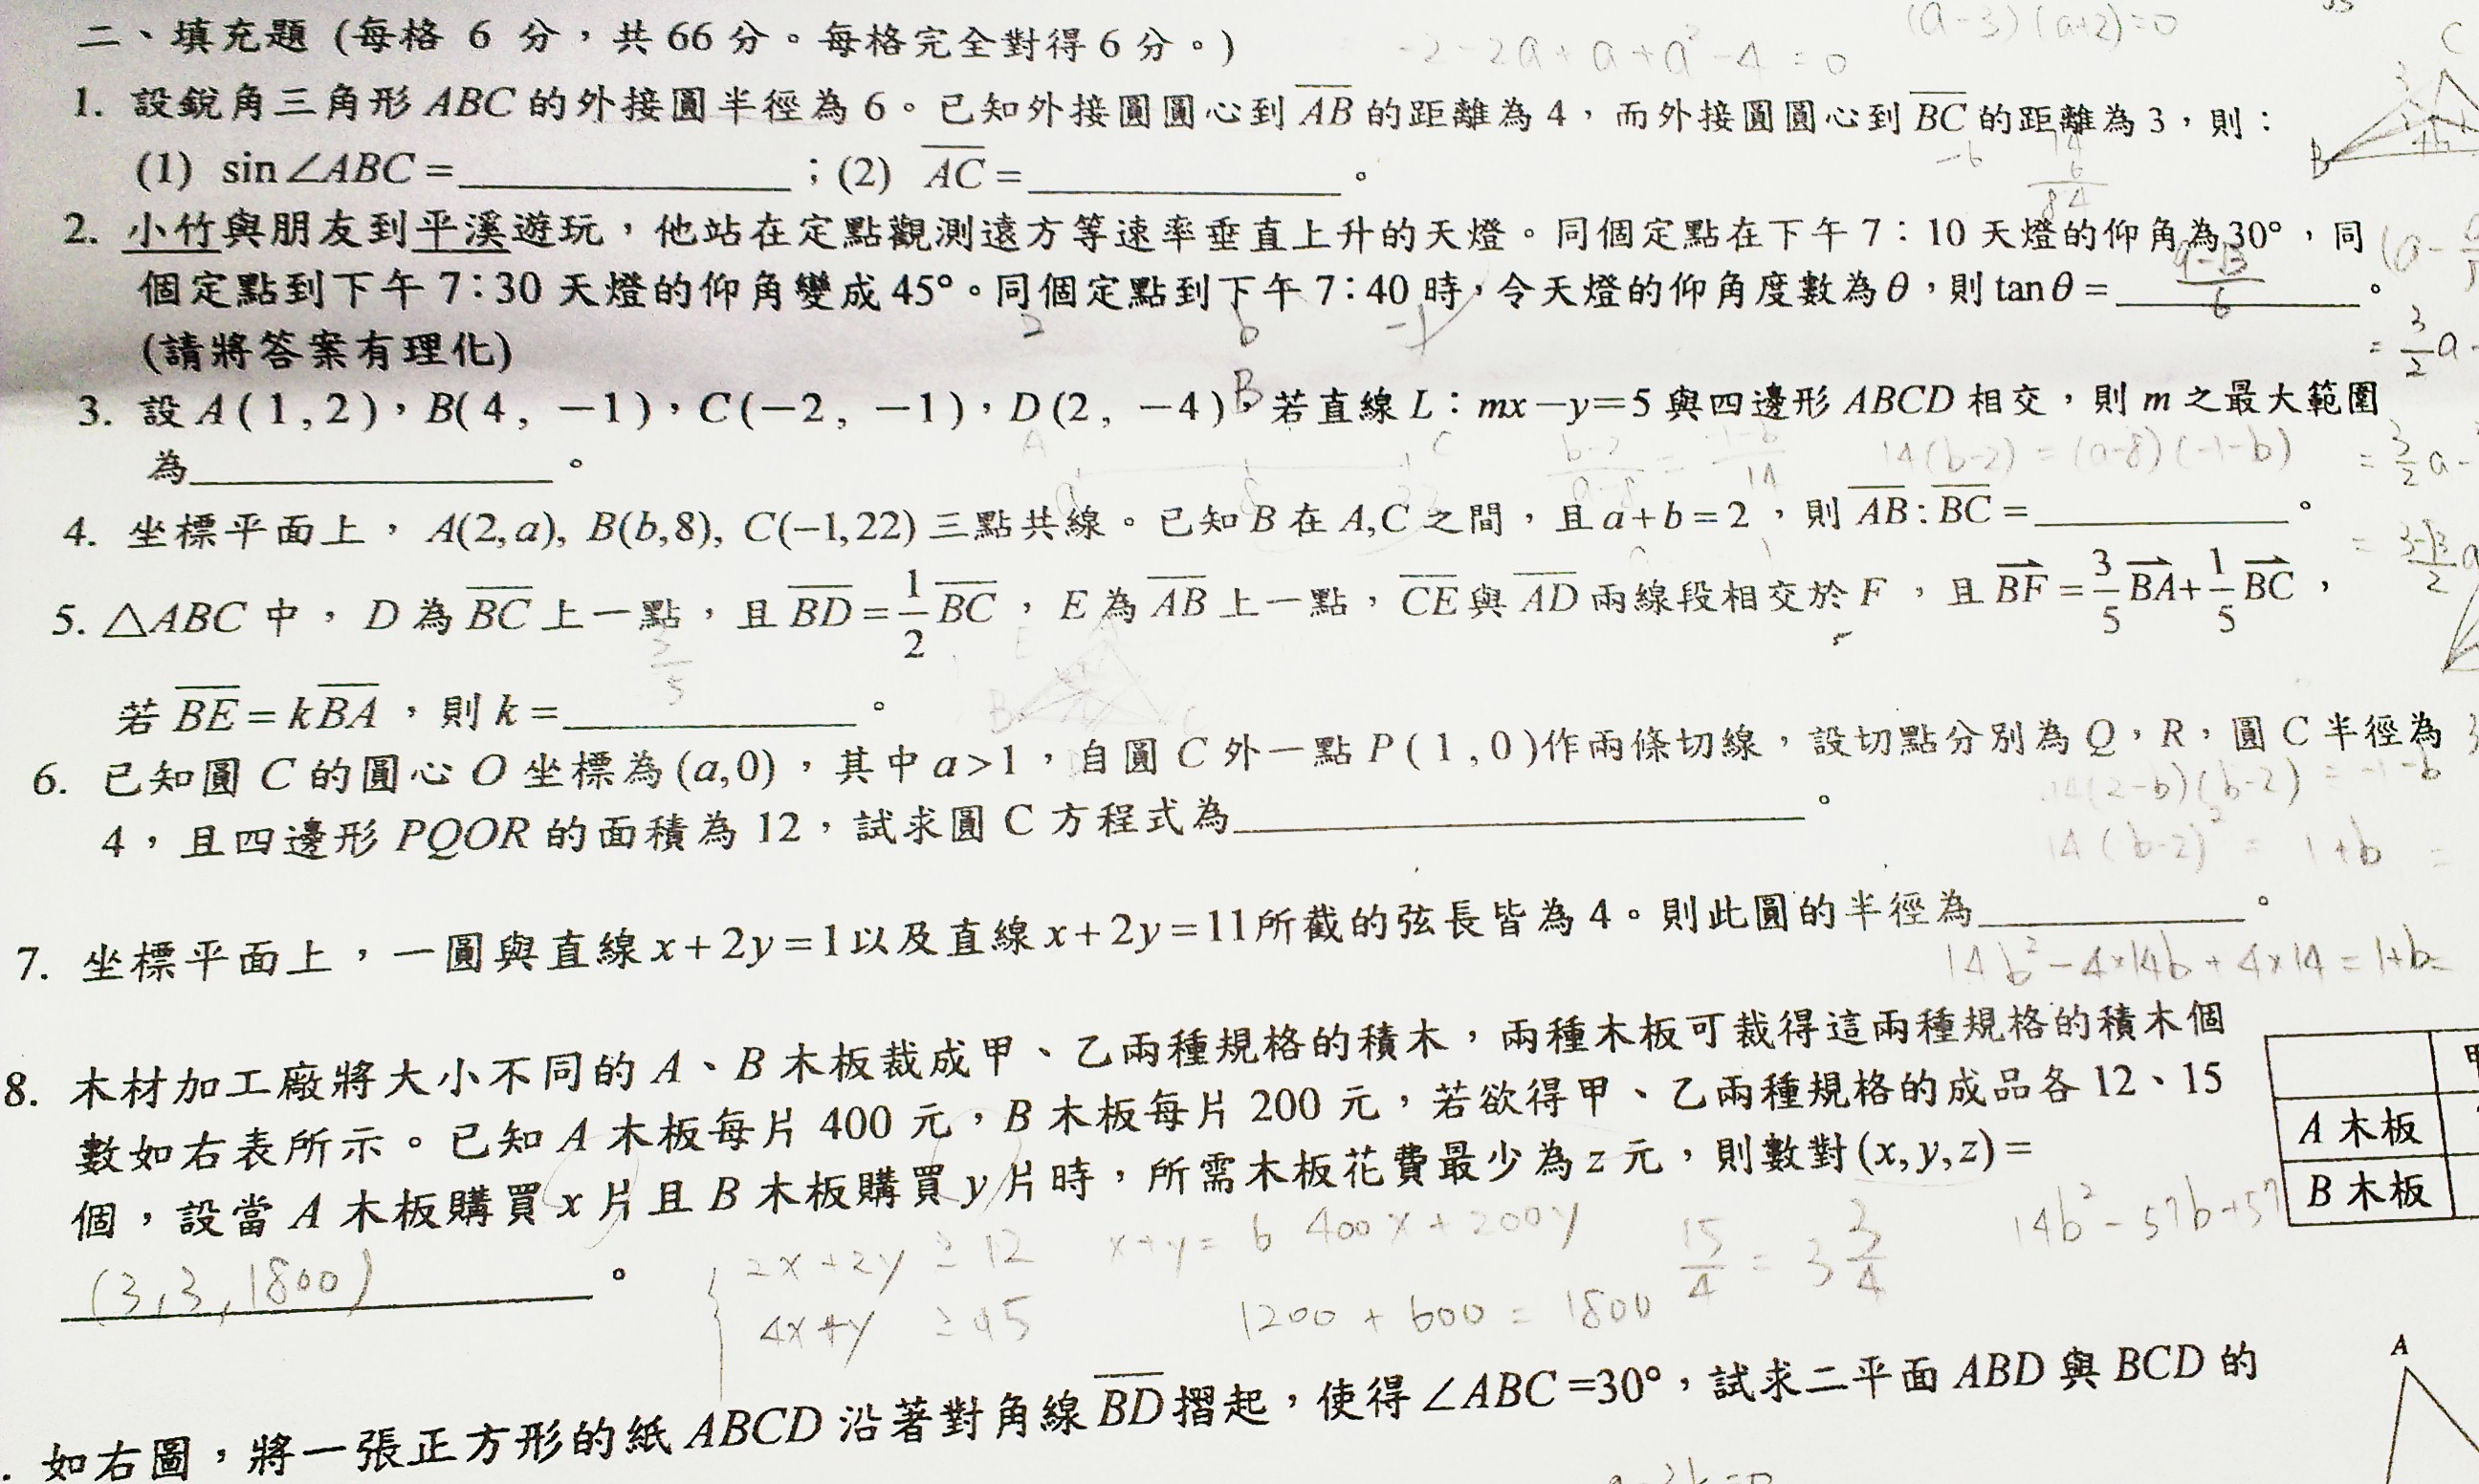 二、填充題 (每格 6 分，共 66 分。每格完全對得 6 分。)
-2-2a+a+a²-4=0
(a-3)(a+2)=0
1. 設銳角三角形 ABC 的外接圓半徑為 6。已知外接圓圓心到 AB 的距離為 4，而外接圓圓心到 BC 的距離為 3，則：
(1) sin∠ABC = ；(2) AC = 。
2. 小竹與朋友到平溪遊玩，他站在定點觀測遠方等速率垂直上升的天燈。同個定點在下午 7：10 天燈的仰角為 30°，同
個定點到下午 7:30 天燈的仰角變成 45°。同個定點到下午 7:40 時，令天燈的仰角度數為 θ，則 tan θ = 。
(請將答案有理化)
3. 設 A(1,2)，B(4, -1)，C(-2, -1)，D(2, -4)，若直線 L：mx-y=5 與四邊形 ABCD 相交，則 m 之最大範圍
為 。
14(b-2) = (a-8)(-1-b)
4. 坐標平面上， A(2,a), B(b,8), C(-1,22) 三點共線。已知 B 在 A,C 之間，且 a+b=2，則 AB:BC = 。
5. △ABC 中， D 為 BC 上一點，且 BD = 1/2 BC， E 為 AB 上一點，CE 與 AD 兩線段相交於 F ，且 BF = 3/5 BA + 1/5 BC ，
若 BE = k BA ，則 k = 。
6. 已知圓 C 的圓心 O 坐標為 (a,0)，其中 a>1，自圓 C 外一點 P(1,0) 作兩條切線，設切點分別為 Q，R，圓 C 半徑為
14(2-b)(b-2) = -1-b
4，且四邊形 PQOR 的面積為 12，試求圓 C 方程式為 。
14(b-2)² = 1+b =
7. 坐標平面上，一圓與直線 x+2y=1 以及直線 x+2y=11 所截的弦長皆為 4。則此圓的半徑為 。
14b²-4×14b+4×14=1+b=
8. 木材加工廠將大小不同的 A、B 木板裁成甲、乙兩種規格的積木，兩種木板可裁得這兩種規格的積木個
數如右表所示。已知 A 木板每片 400 元，B 木板每片 200 元，若欲得甲、乙兩種規格的成品各 12、15
個，設當 A 木板購買 x 片且 B 木板購買 y 片時，所需木板花費最少為 z 元，則數對 (x,y,z) =
A 木板
B 木板
(3,3,1800) 。
2x+2y ≥ 12 x+y= 6 400x+200y 15/4 = 3 3/4
14b²-57b+57
4x+y ≥ 15 1200 + 600 = 1800
A
. 如右圖，將一張正方形的紙 ABCD 沿著對角線 BD 摺起，使得 ∠ABC=30°，試求二平面 ABD 與 BCD 的